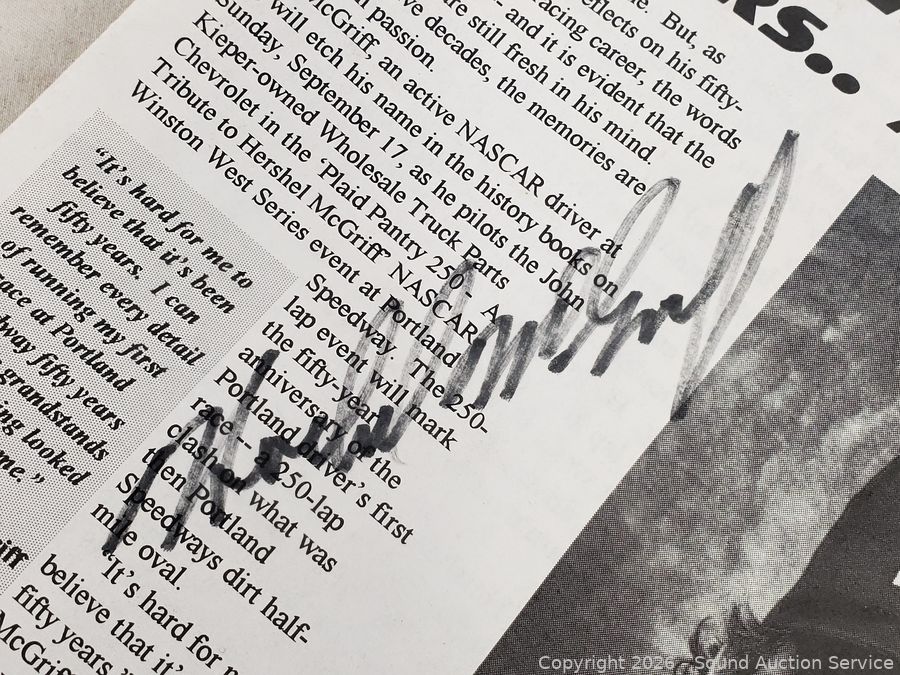 RS...
But, as
reflects on his fifty-
racing career, the words
and it is evident that the
are still fresh in his mind.
decades, the memories are
passion.
McGriff, an active NASCAR driver at
will etch his name in the history books on
Sunday, September 17, as he pilots the John
Kieper-owned Wholesale Truck Parts
Chevrolet in the 'Plaid Pantry 250 - A
Tribute to Hershel McGriff' NASCAR
Winston West Series event at Portland
Speedway. The 250-
lap event will mark
the fifty-year
anniversary of the
Portland driver's first
race -- a 250-lap
clash on what was
then Portland
Speedways dirt half-
mile oval.
"It's hard for
believe that it'
fifty years,"
McGriff
"It's hard for me to
believe that it's been
fifty years. I can
remember every detail
of running my first
race at Portland
fifty years
grandstands
looked
me."
Hershel McGriff
Copyright 2026 - Sound Auction Service